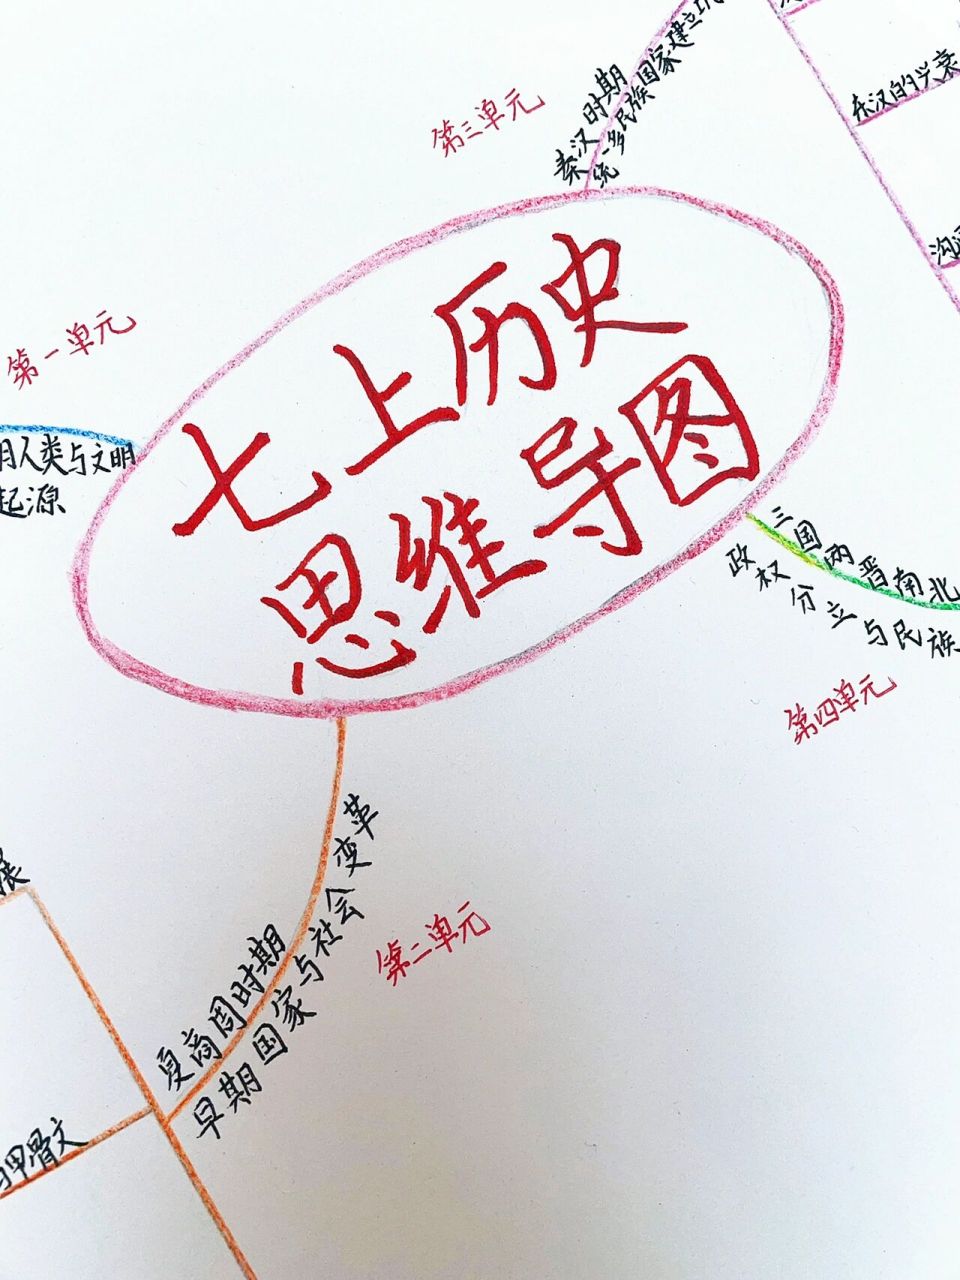 七上历史
思维导图
第一单元
人类与文明
起源
第二单元
夏商周时期
早期国家与社会变革
甲骨文
展
第三单元
秦汉时期
统一多民族国家建立
东汉的兴衰
沟
第四单元
三国两晋南北
政权分立与民族